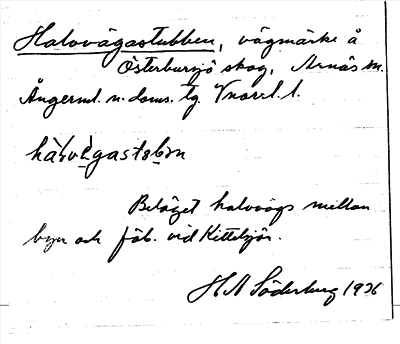 Halvvägastubben, vägmärke å
Österbursjö skog, Arnäs sn.
Ångerml. n. doms. tg. Vnorrl. l.
Beläget halvvägs mellan
byn och fäb. vid Kitteltjär.
H A Söderberg 1926